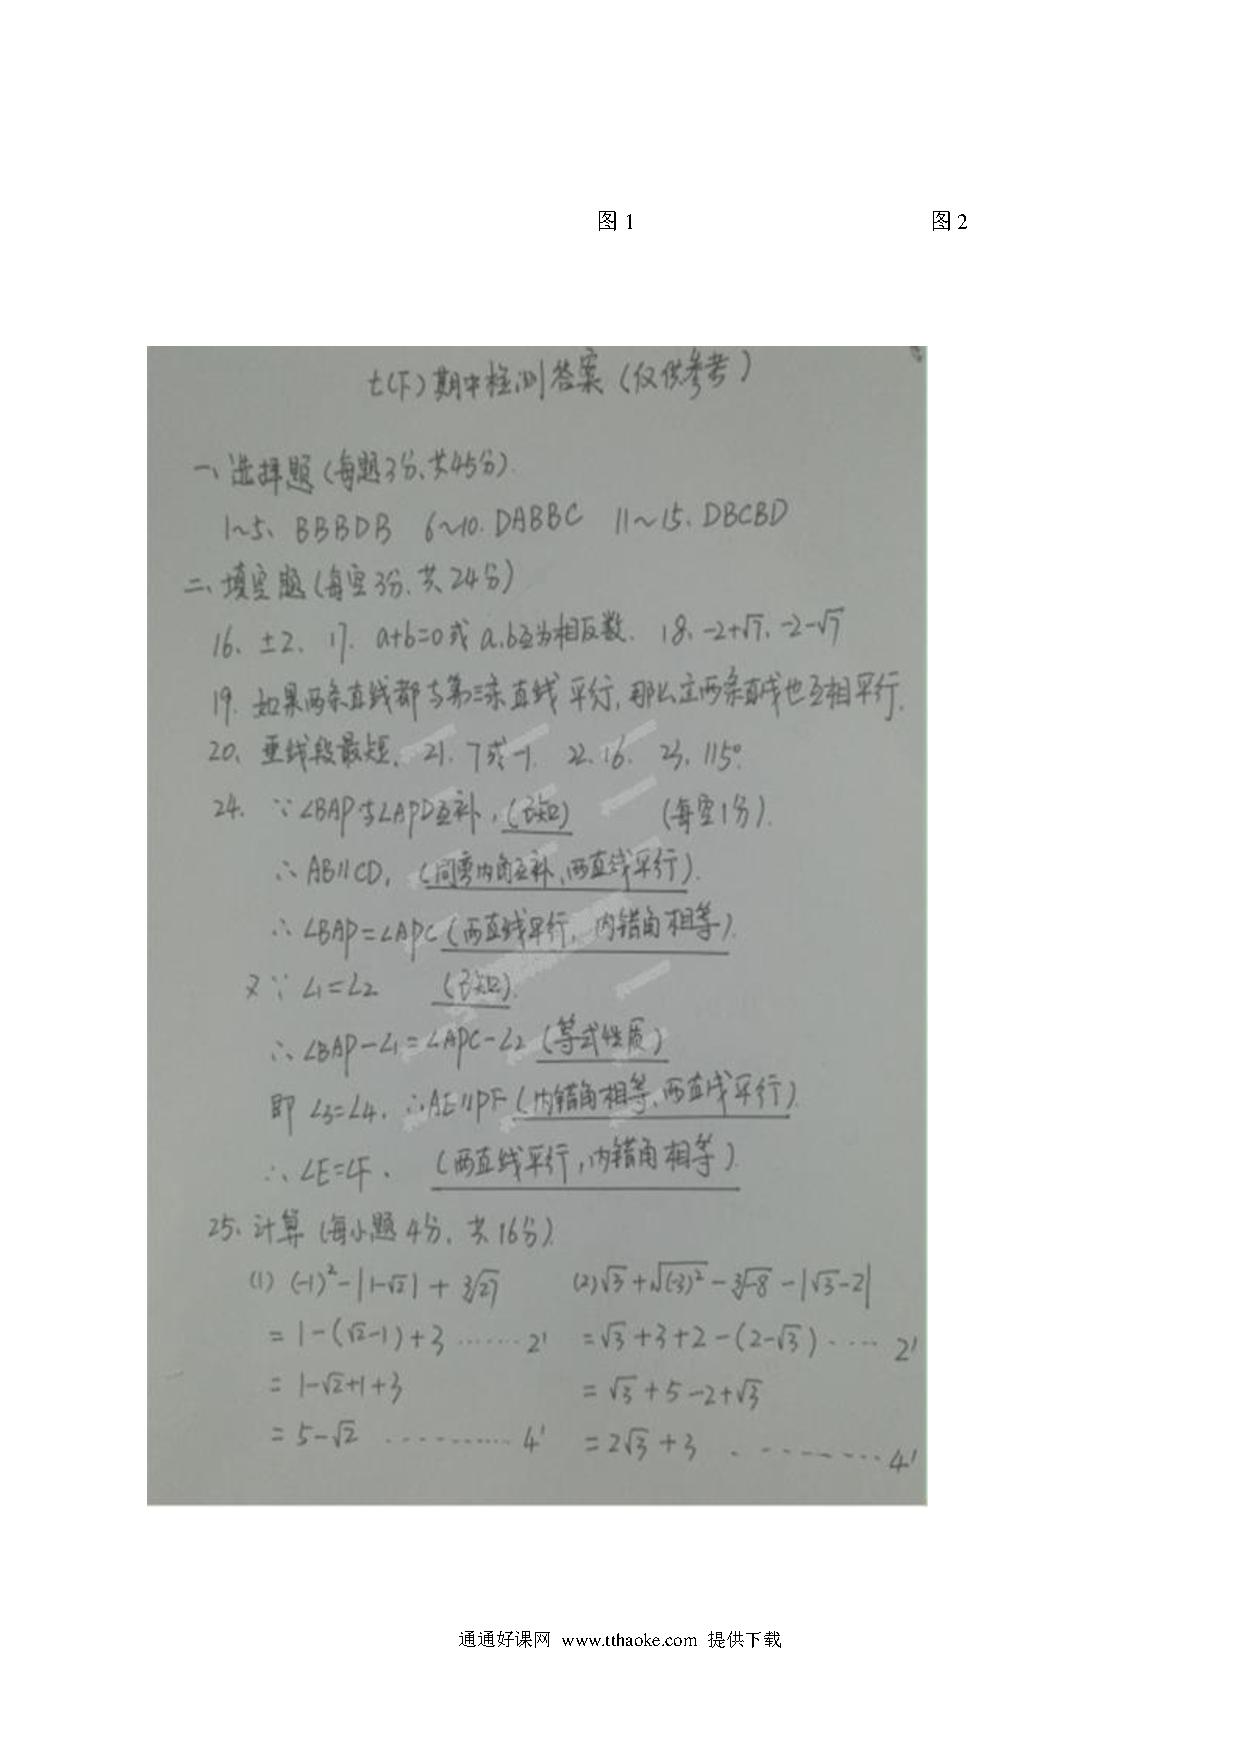 图 1 图 2
七(下)期中检测答案(仅供参考)
一、选择题(每题3分,共45分)
1~5、BBBDB 6~10.DABBC 11~15、DBCBD
二、填空题(每空3分,共24分)
16、±2、17、a+b=0或a,b互为相反数. 18、-2+√7、-2-√7
19. 如果两条直线都与第三条直线平行,那么这两条直线也互相平行.
20、垂线段最短. 21. 7或-1. 22、16. 23、115°.
24. ∵∠BAP与∠APD互补,(已知) (每空1分).
∴AB∥CD,(同旁内角互补,两直线平行).
∴∠BAP=∠APC(两直线平行,内错角相等).
又∵∠1=∠2 (已知).
∴∠BAP-∠1=∠APC-∠2(等式性质)
即∠3=∠4. ∴AE∥PF(内错角相等,两直线平行).
∴∠E=∠F. (两直线平行,内错角相等).
25、计算(每小题4分,共16分).
(1) (-1)²-|1-√2|+³√27 (2)√3+√(-3)²-³√-8-|√3-2|
=1-(√2-1)+3 ······· 2' =√3+3+2-(2-√3)····· 2'
=1-√2+1+3 =√3+5-2+√3
=5-√2 ·········· 4' =2√3+3 ·········· 4'
通通好课网 www.tthaoke.com 提供下载